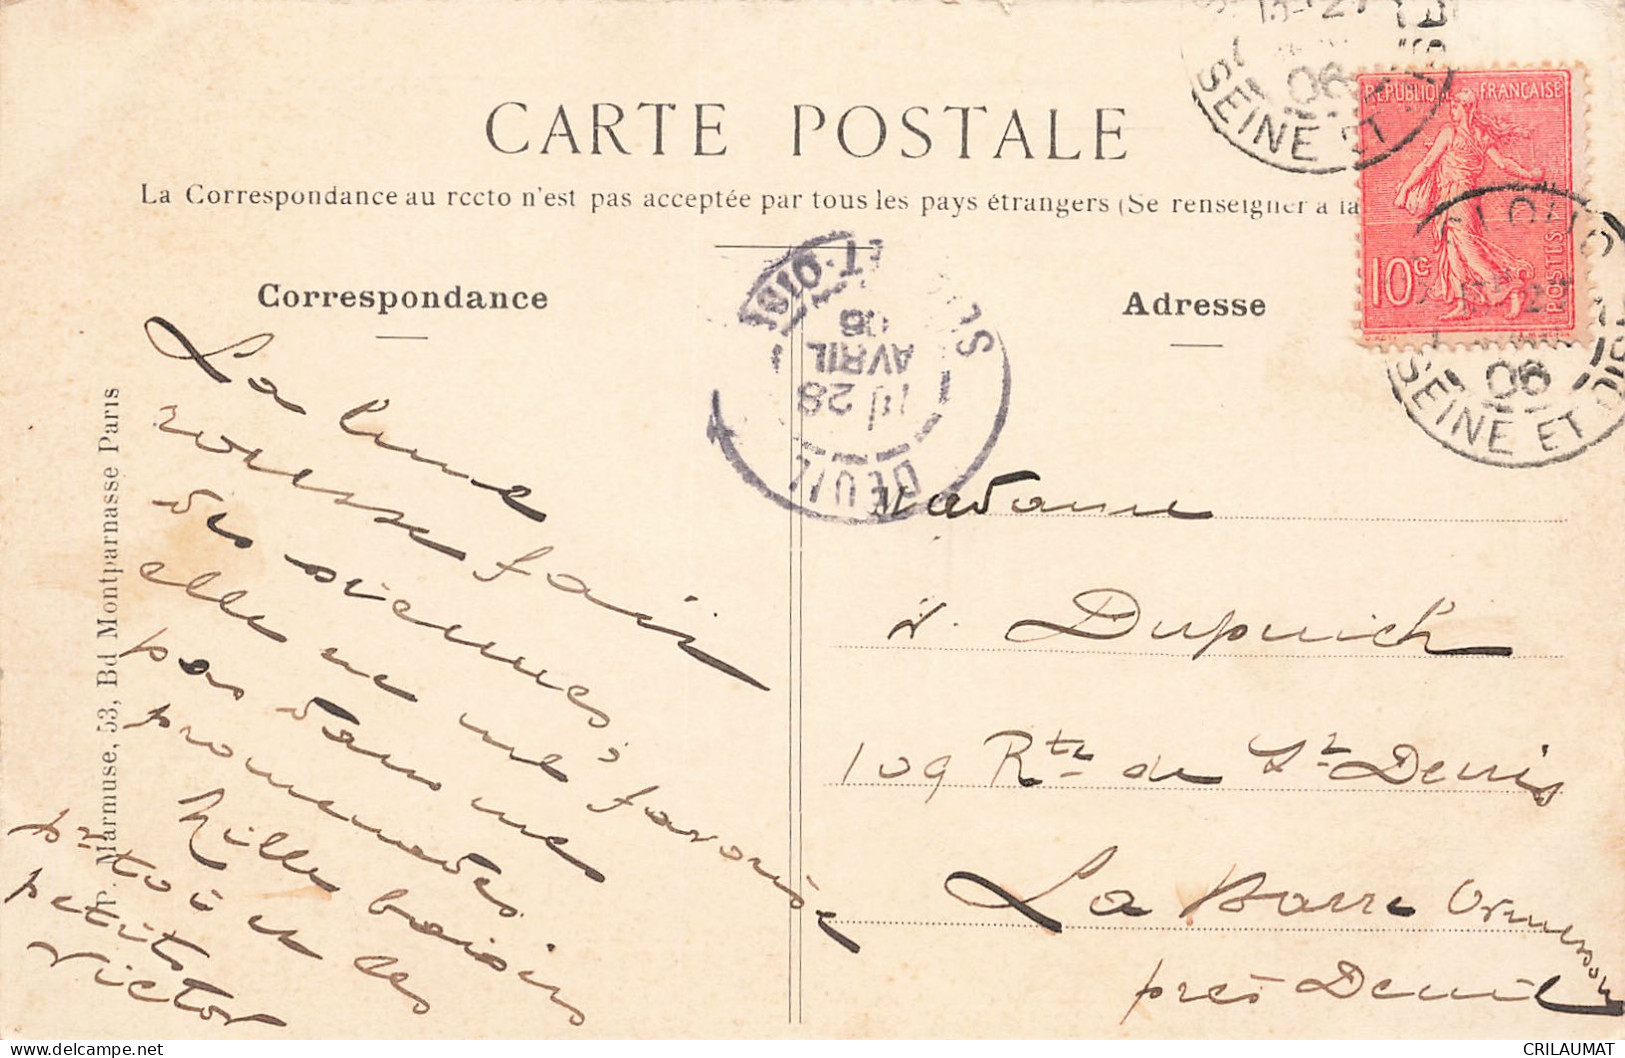 CARTE POSTALE
La Correspondance au recto n'est pas acceptée par tous les pays étrangers (Se renseigner à la
Correspondance
Adresse
RÉPUBLIQUE FRANÇAISE
10c
POSTES
SEINE ET
06
SEINE ET OISE
06
DEUIL
28
AVRIL
06
SEINE-ET-OISE
P. Marmuse, 53, Bd Montparnasse Paris
La lune
rousse fait
des siennes,
elle ne me favorise
pas dans mes
promenades
Mille baisers
pr toi et les
petits
Victor
Madame
V. Dupuich
109 Rte de St Denis
La Barre Ormesson
près Deuil
CRILAUMAT